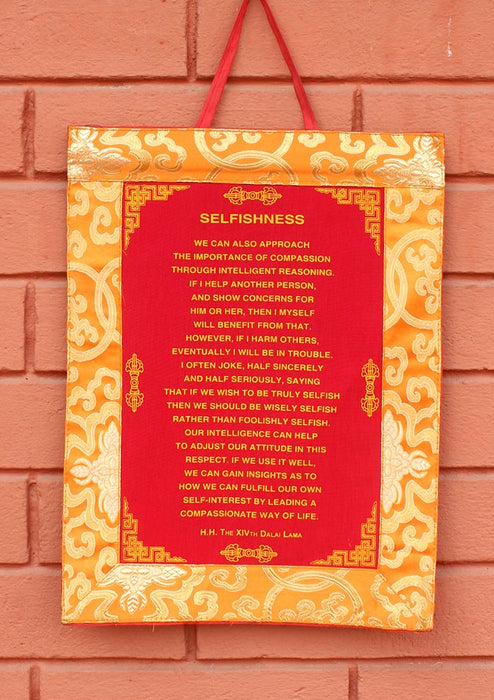 SELFISHNESS
WE CAN ALSO APPROACH
THE IMPORTANCE OF COMPASSION
THROUGH INTELLIGENT REASONING.
IF I HELP ANOTHER PERSON,
AND SHOW CONCERNS FOR
HIM OR HER, THEN I MYSELF
WILL BENEFIT FROM THAT.
HOWEVER, IF I HARM OTHERS,
EVENTUALLY I WILL BE IN TROUBLE.
I OFTEN JOKE, HALF SINCERELY
AND HALF SERIOUSLY, SAYING
THAT IF WE WISH TO BE TRULY SELFISH
THEN WE SHOULD BE WISELY SELFISH
RATHER THAN FOOLISHLY SELFISH.
OUR INTELLIGENCE CAN HELP
TO ADJUST OUR ATTITUDE IN THIS
RESPECT. IF WE USE IT WELL,
WE CAN GAIN INSIGHTS AS TO
HOW WE CAN FULFILL OUR OWN
SELF-INTEREST BY LEADING A
COMPASSIONATE WAY OF LIFE.
H.H. THE XIVTH DALAI LAMA